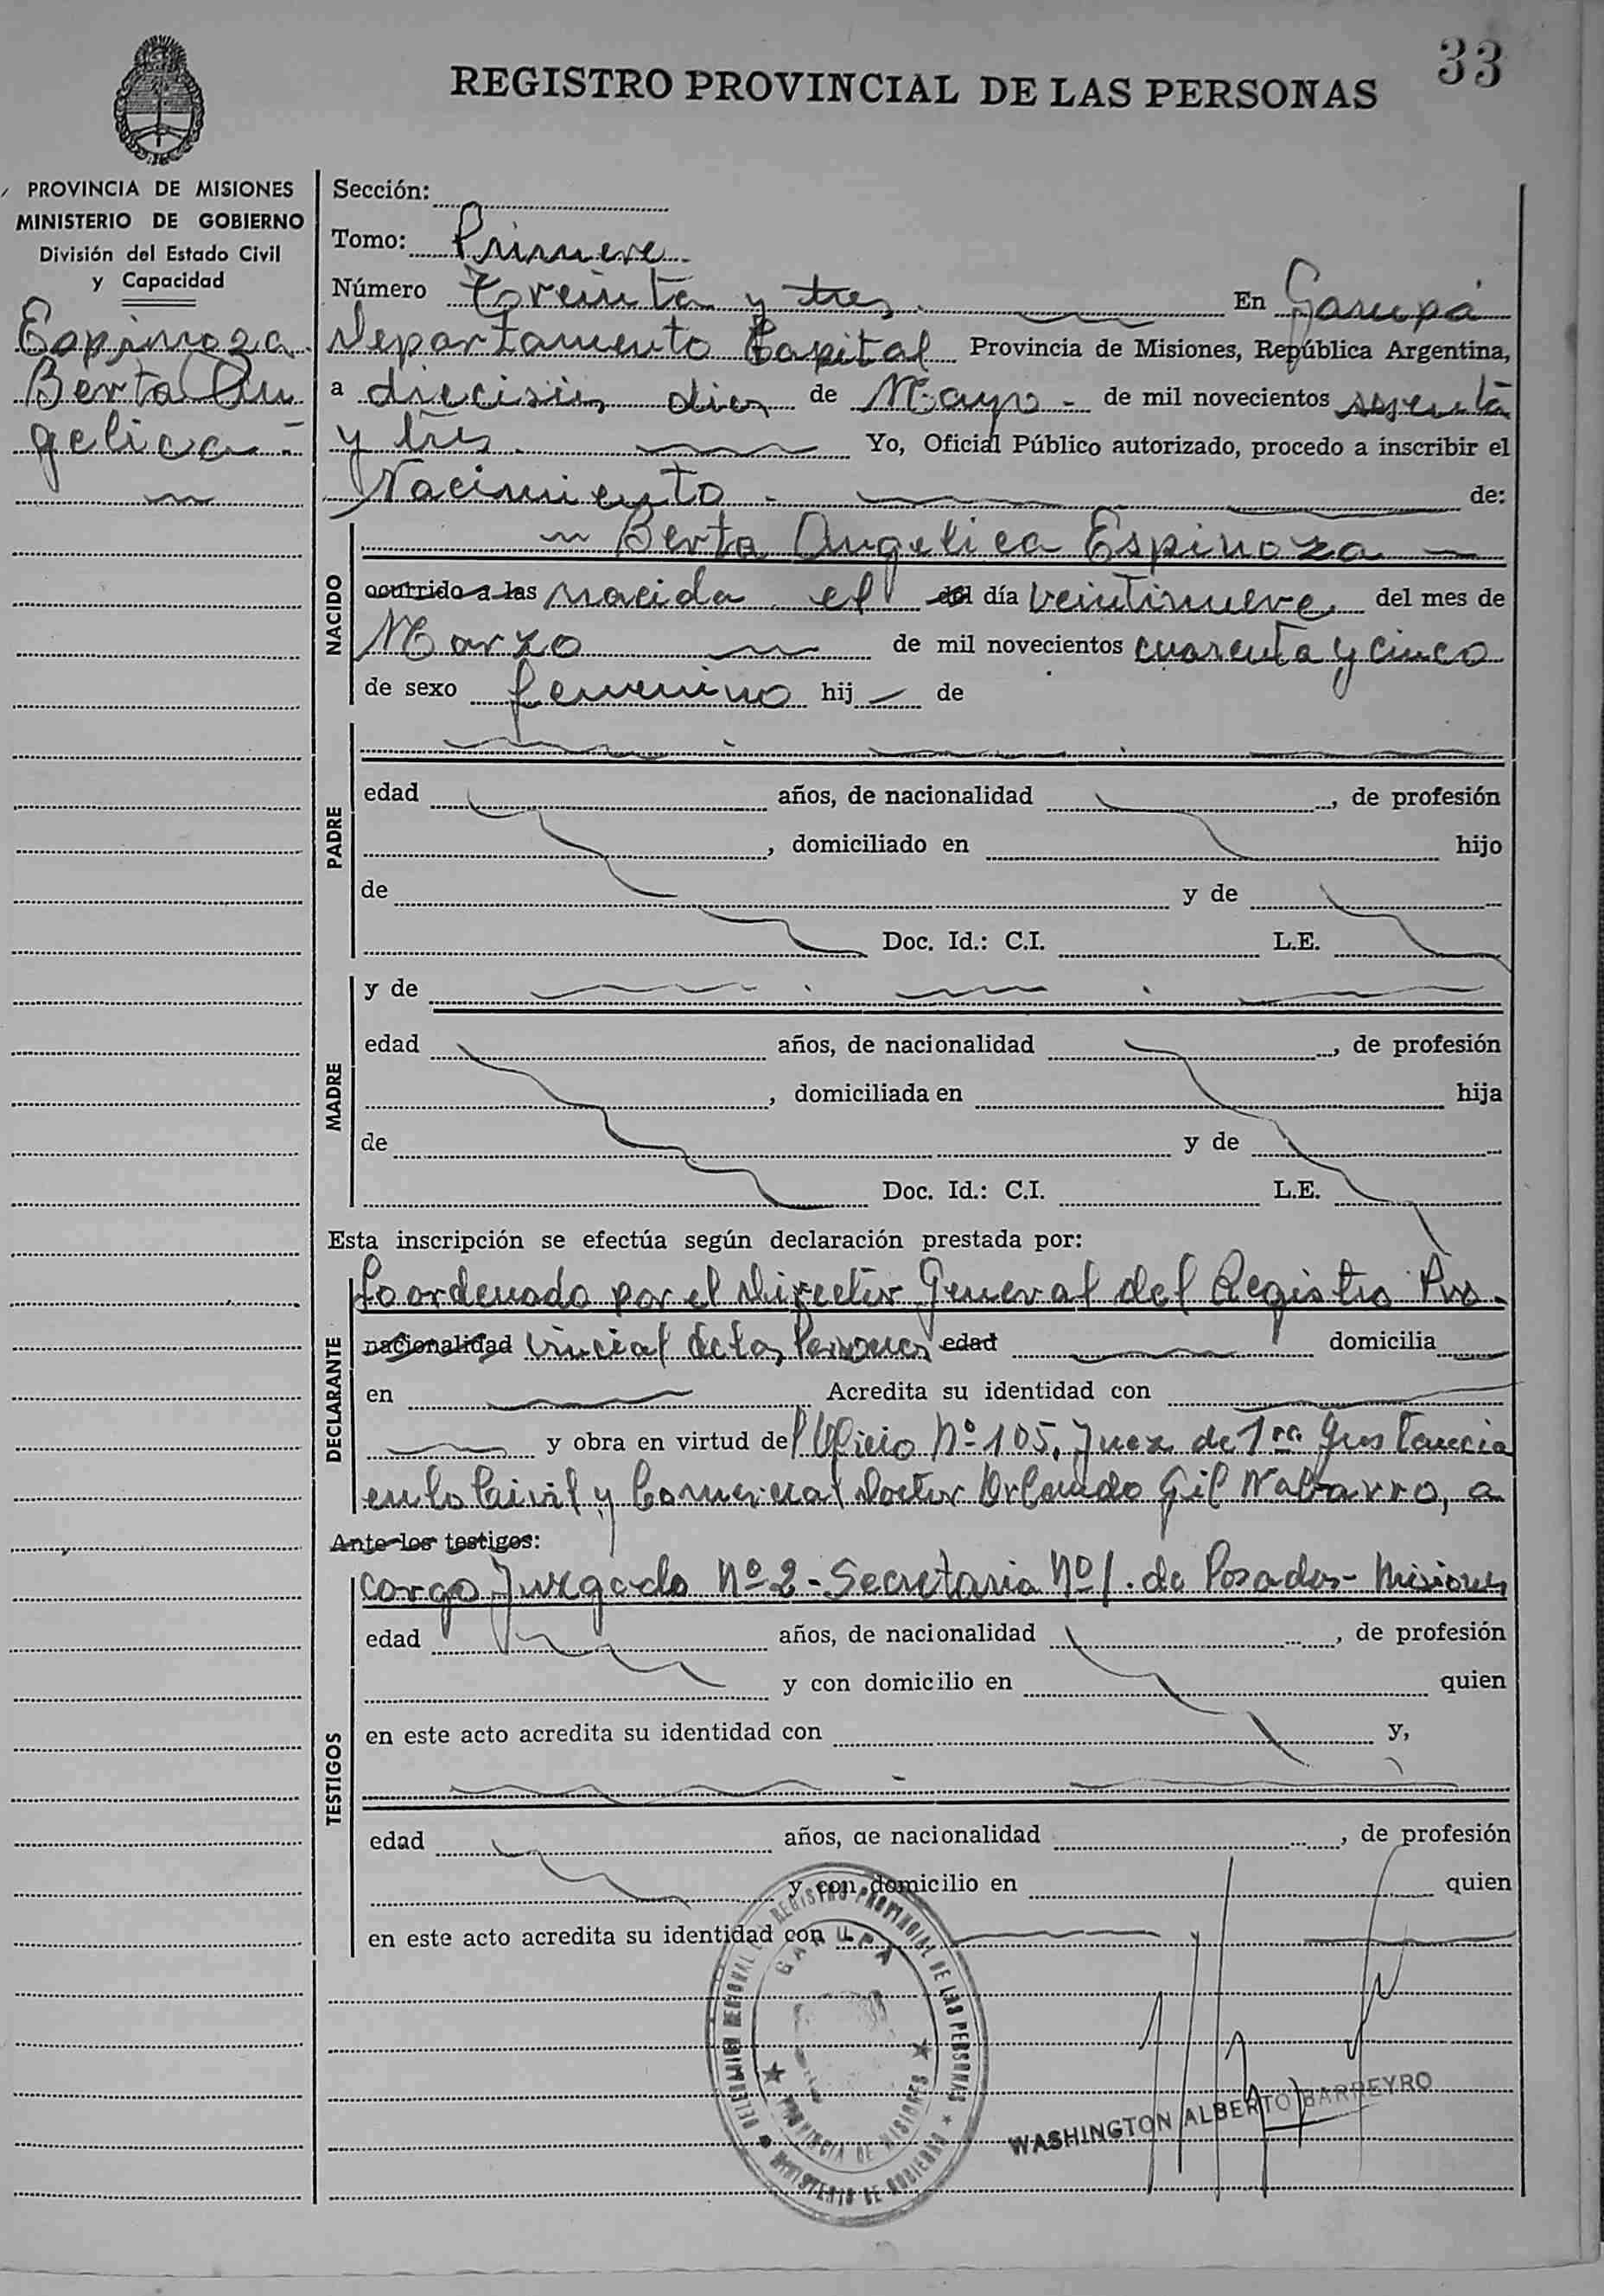 33
REGISTRO PROVINCIAL DE LAS PERSONAS
PROVINCIA DE MISIONES
MINISTERIO DE GOBIERNO
División del Estado Civil
y Capacidad
Espinoza
Berta An
gelica -
Sección:
Tomo: Primero
Número Treinta y tres En Garupá
Departamento Capital Provincia de Misiones, República Argentina,
a dieciseis dias de Mayo - de mil novecientos sesenta
y tres. Yo, Oficial Público autorizado, procedo a inscribir el
Nacimiento - de:
NACIDO
Berta Angelica Espinoza
ocurrido a las nacida el del día veintinueve del mes de
Marzo de mil novecientos cuarenta y cinco
de sexo femenino hij de
PADRE
edad años, de nacionalidad , de profesión
, domiciliado en hijo
de y de
Doc. Id.: C.I. L.E.
MADRE
y de
edad años, de nacionalidad , de profesión
, domiciliada en hija
de y de
Doc. Id.: C.I. L.E.
Esta inscripción se efectúa según declaración prestada por:
DECLARANTE
Lo ordenado por el Director General del Registro Pro-
nacionalidad vincial de las Personas edad domicilia
en Acredita su identidad con
y obra en virtud del Oficio Nº 105, Juez de 1ra Instancia
en lo Civil y Comercial Doctor Orlando Gil Nabarro, a
Ante los testigos:
TESTIGOS
cargo Juzgado Nº 2 - Secretaria Nº 1. de Posadas - Misiones
edad años, de nacionalidad , de profesión
y con domicilio en quien
en este acto acredita su identidad con y,
edad años, de nacionalidad , de profesión
y con domicilio en quien
en este acto acredita su identidad con
REGISTRO PROVINCIAL DE LAS PERSONAS
GARUPA
PROVINCIA DE MISIONES
MINISTERIO DE GOBIERNO
WASHINGTON ALBERTO BARREYRO